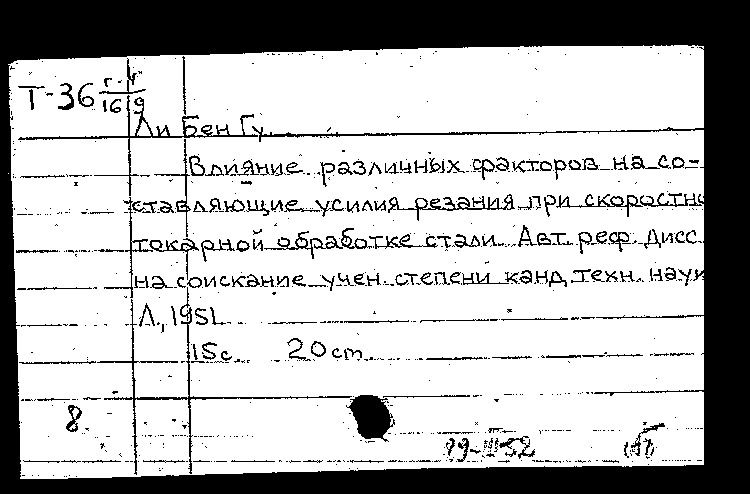 Т-36 г-4
16 9
Ли Бен Гу.
Влияние различных факторов на со-
ставляющие усилия резания при скоростно
токарной обработке стали. Авт. реф. дисс
на соискание учен. степени канд. техн. наук
Л., 1951.
15 с. 20 cm.
8.
-III-52